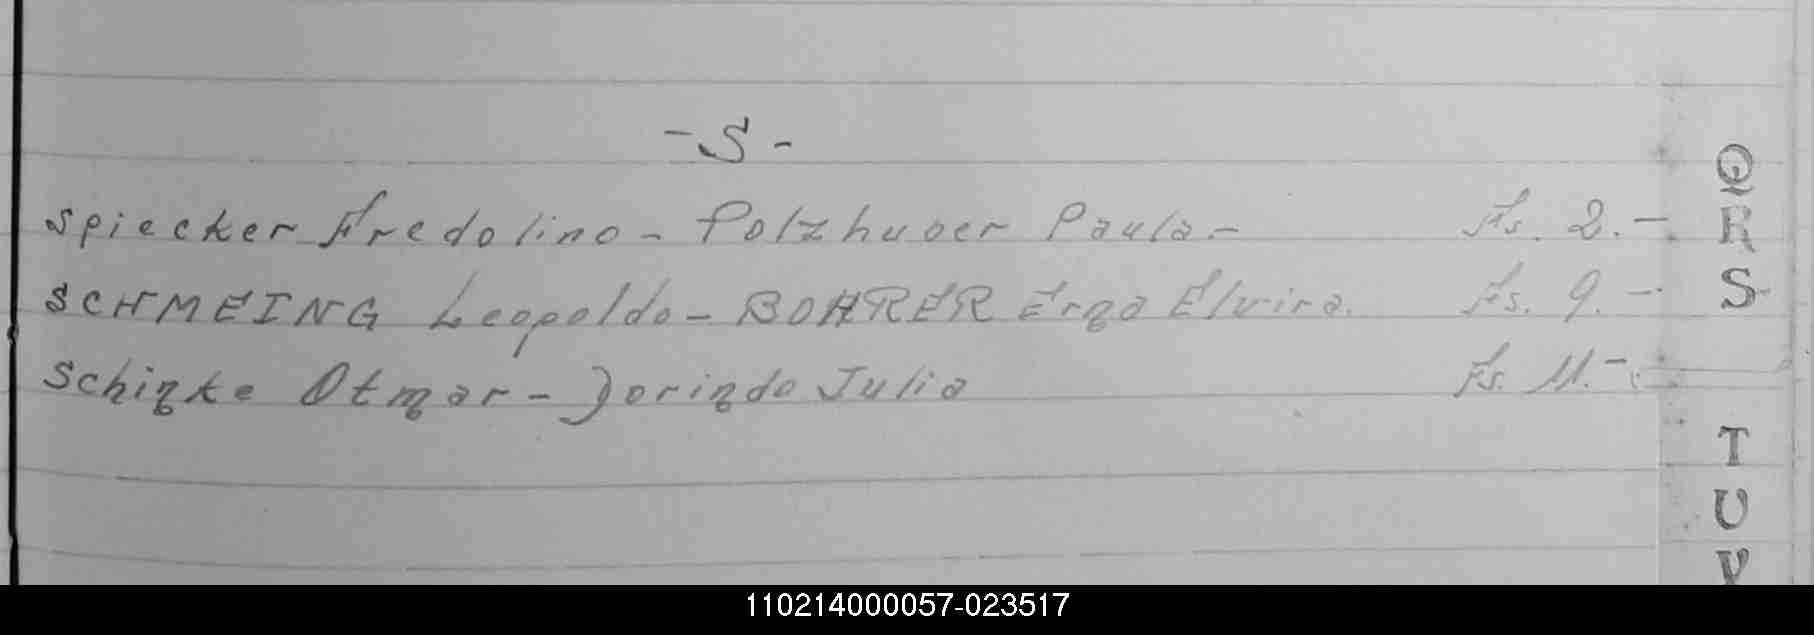 - S -
Spiecker Fredolino - Polzhuber Paula - Fs. 2. -
SCHMEING Leopoldo - BOHRER Erga Elvira. Fs. 9. -
Schinke Otmar - Dorinda Julia Fs. 11. -
Q
R
S
T
U
V
110214000057-023517